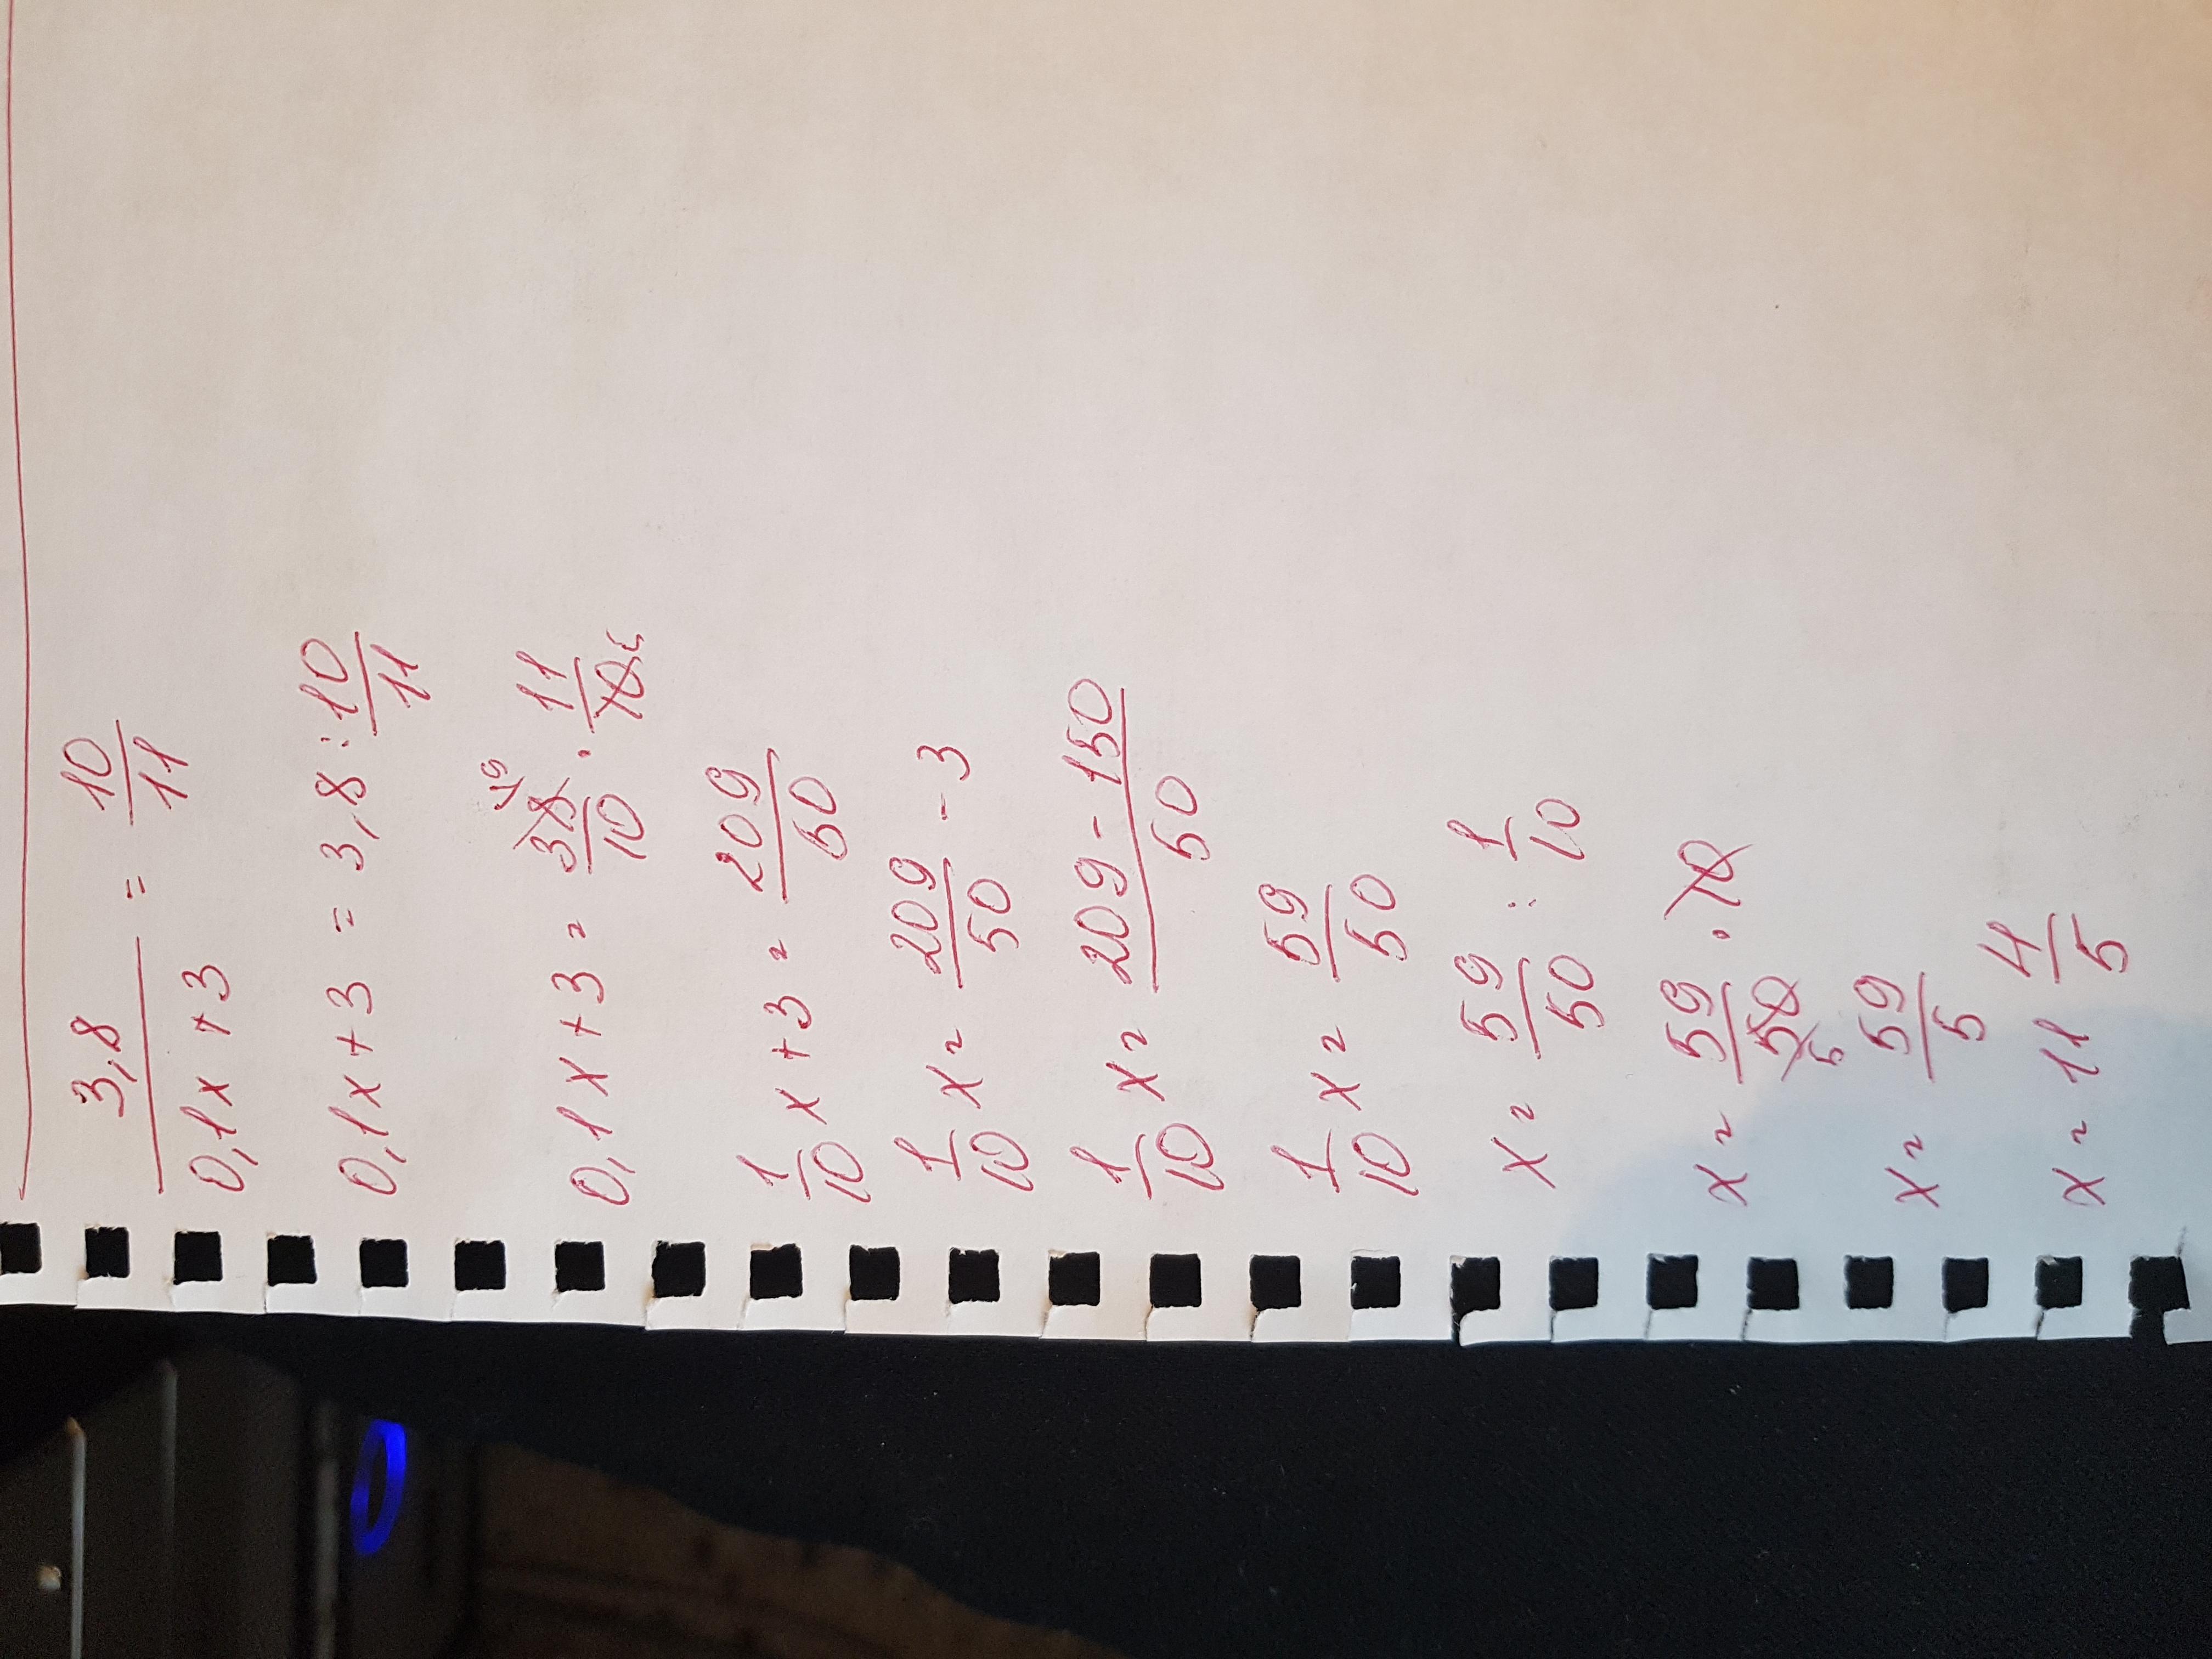 3,8/(0,1x+3) = 10/11
0,1x+3 = 3,8 : 10/11
0,1x+3 = 38/10 · 11/10 19 5
1/10 x+3 = 209/50
1/10 x = 209/50 - 3
1/10 x = (209-150)/50
1/10 x = 59/50
x = 59/50 : 1/10
x = 59/50 · 10 5
x = 59/5
x = 11 4/5